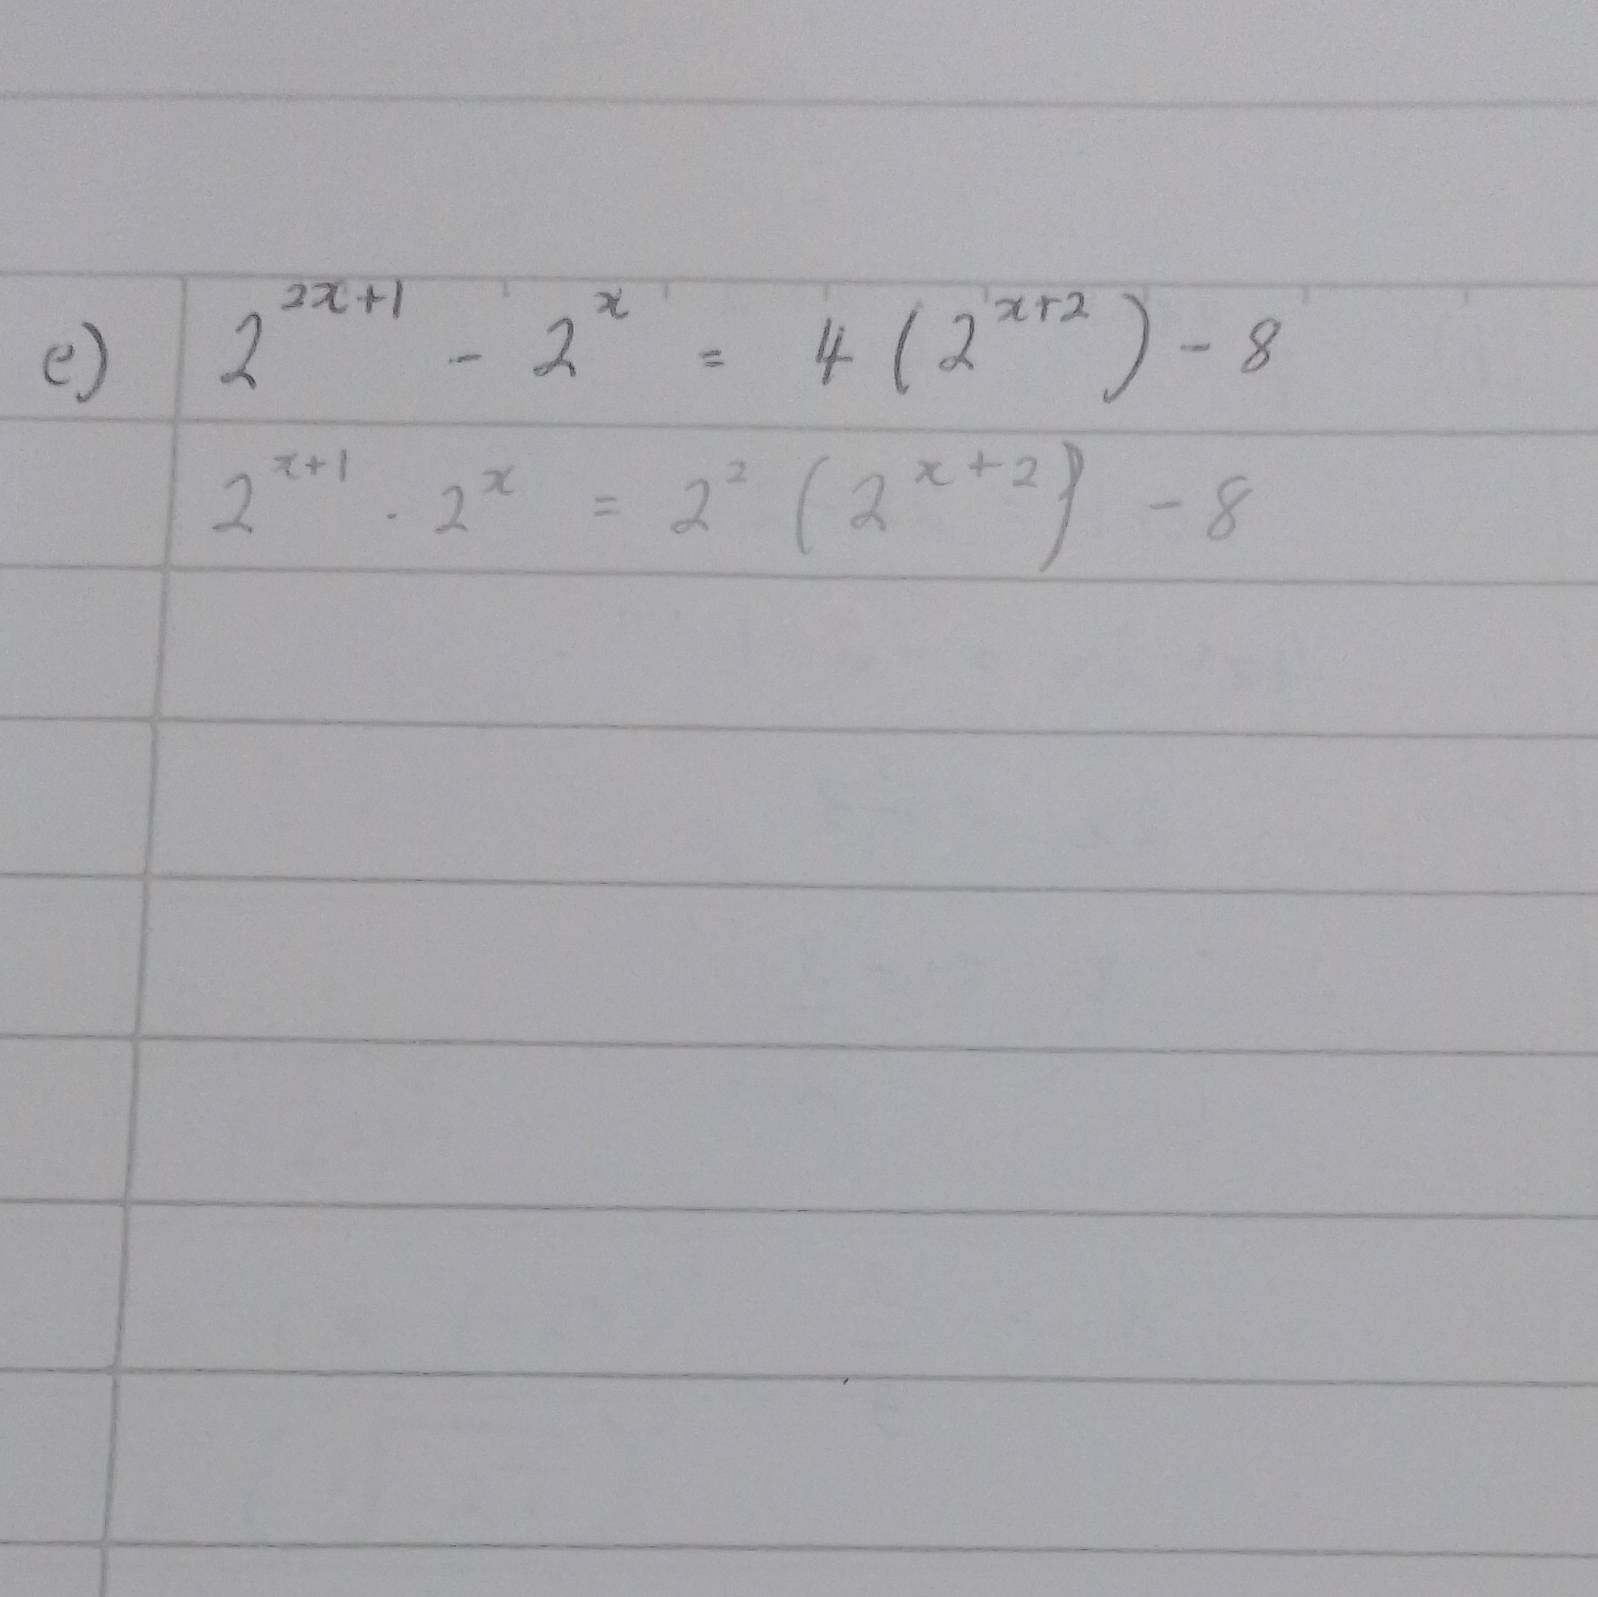 e) 2^{2x+1} - 2^x = 4 (2^{x+2}) - 8
2^{x+1} . 2^x = 2^2 (2^{x+2}) - 8